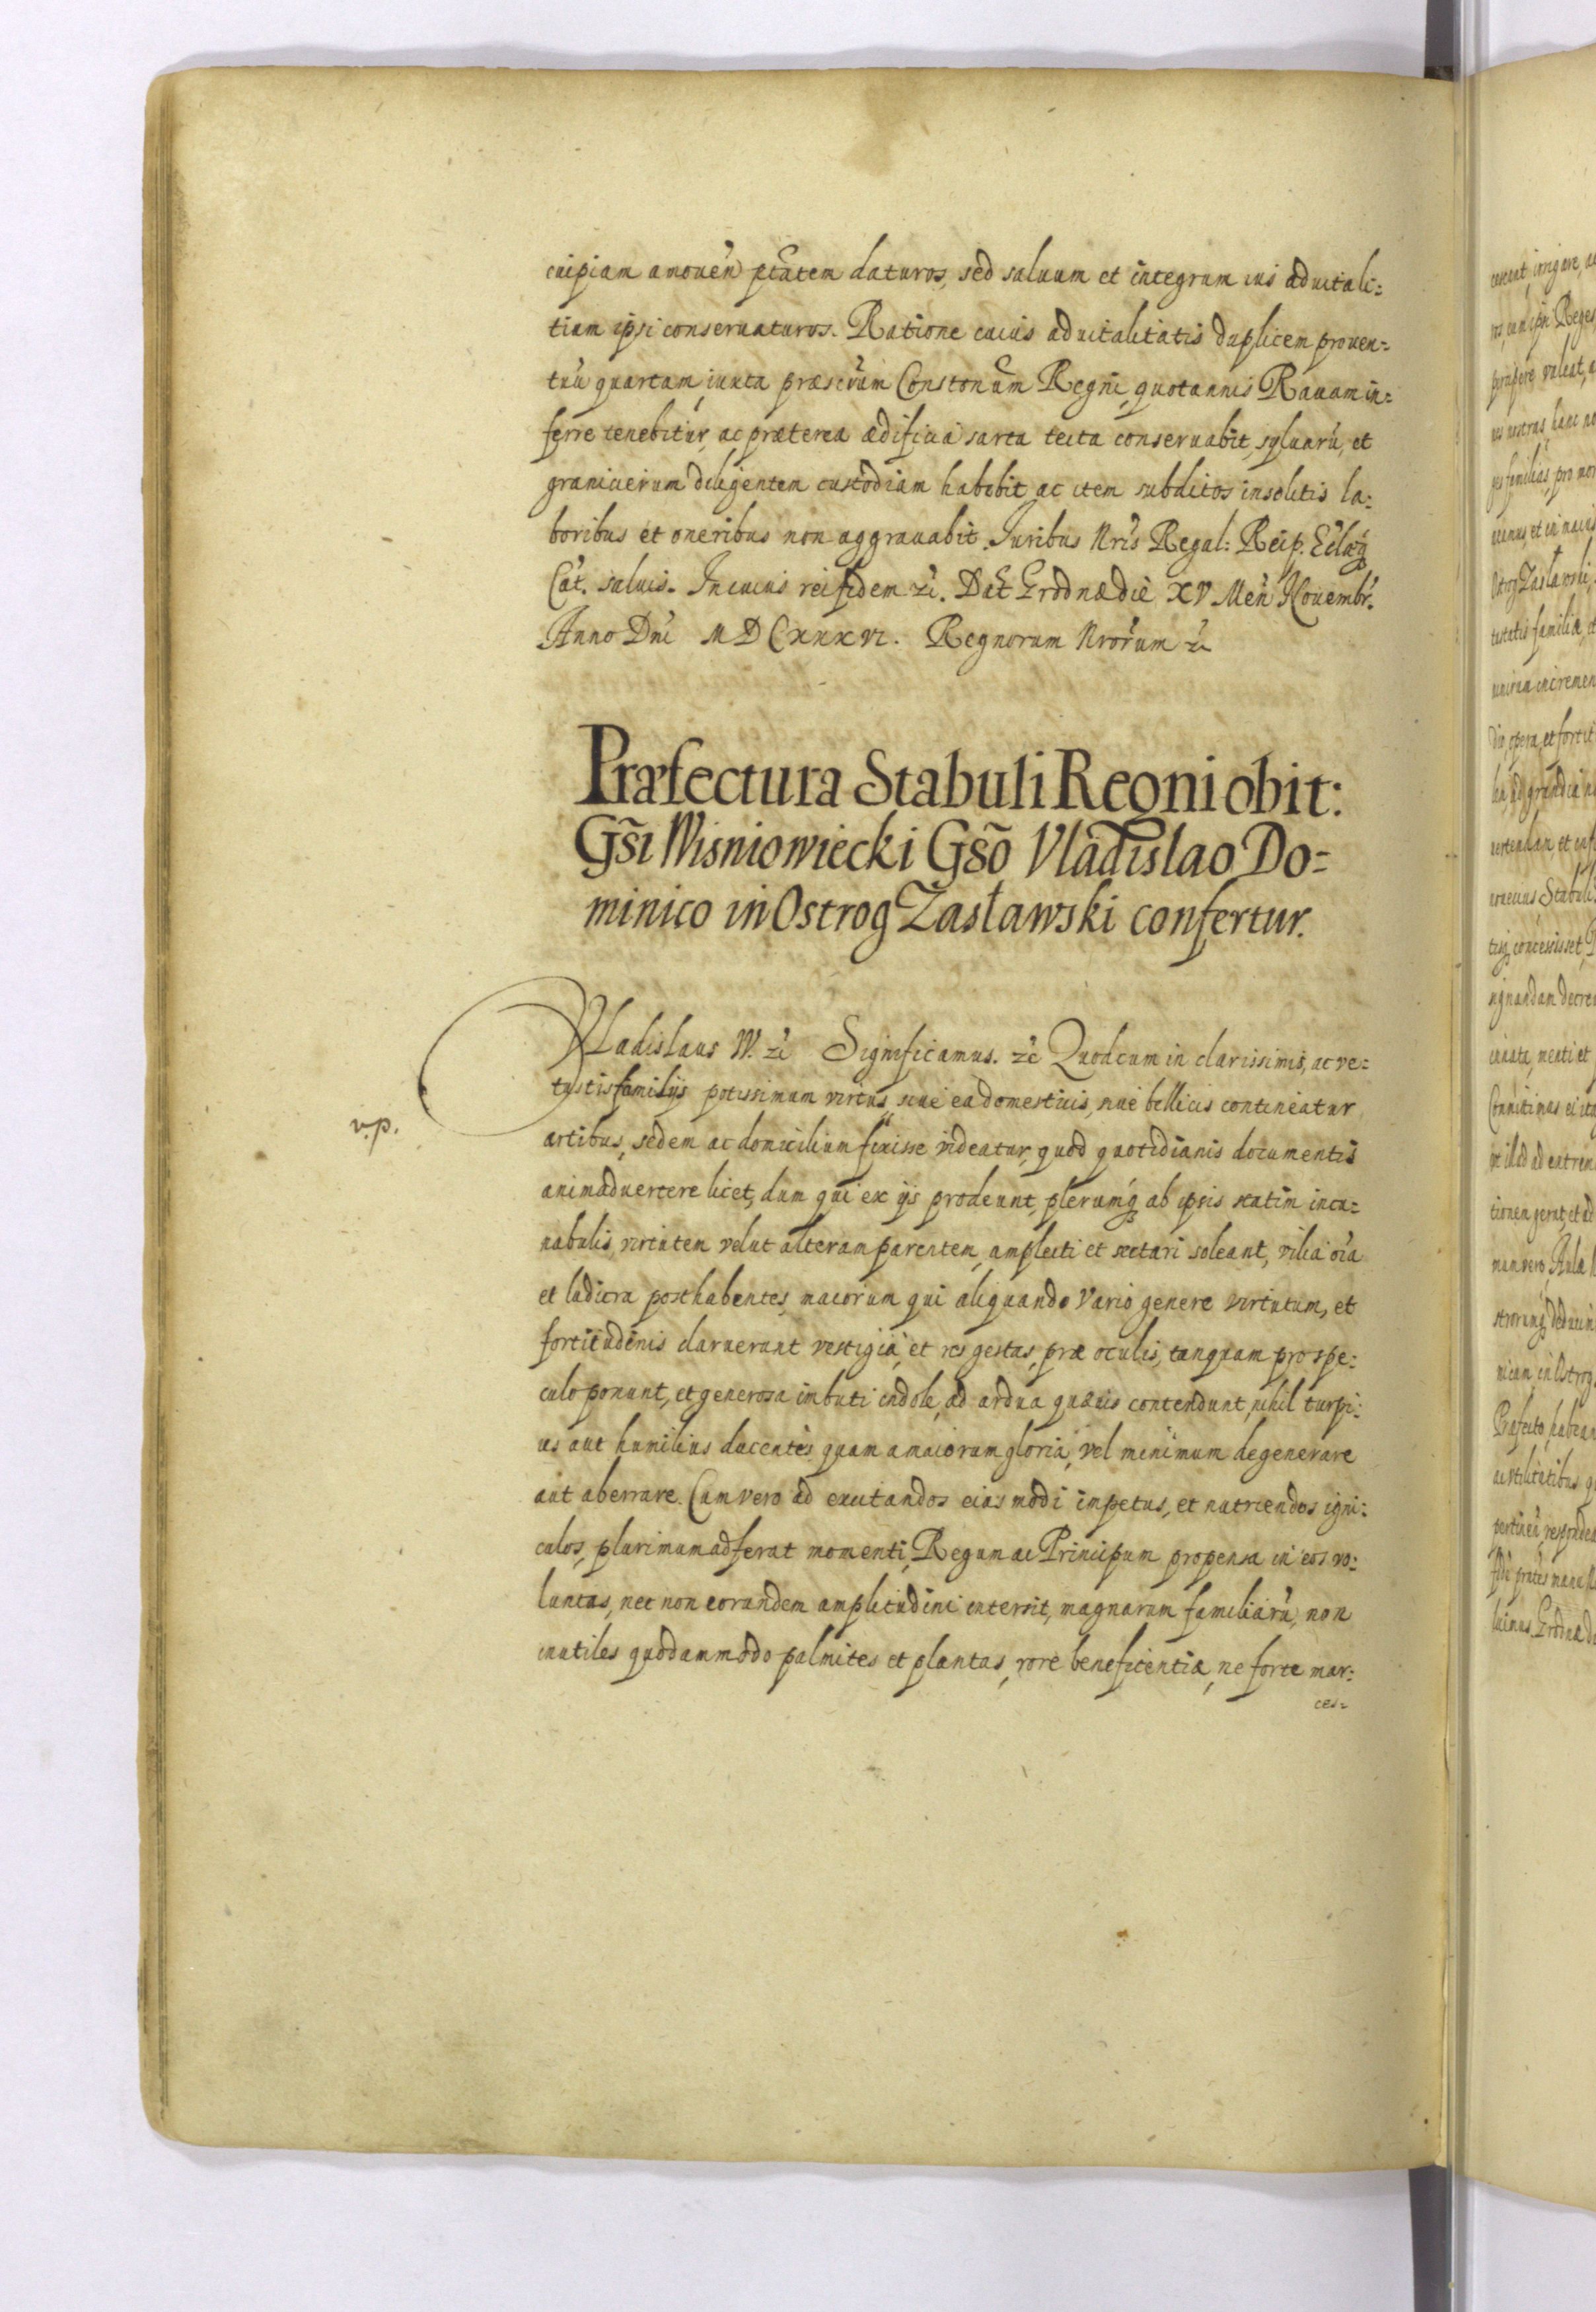 cuipiam amouen ptatem daturos, sed saluum et integrum ius aduitali=
tium ipsi conseruaturos. Ratione cuius aduitalitatis duplicem prouen=
tuu quartam, iuxta præscrum Constonum Regni, quotannis Rauam in=
ferre tenebitur, ac præterea ædificia sarta tecta conseruabit, syluaru, et
granicierum diligentem custodiam habebit, ac item subditos insolitis la=
boribus et oneribus non aggrauabit. Iuribus Nris Regal: Reip. Eclæq
Cat. saluis. In cuius rei fidem zc. Dat Grodnæ die XV Men Nouembr.
Anno Dni MDCXXXVI. Regnorum Nrorum zc
Præfectura Stabuli Regni obit:
Gsi Wisniowiecki Gso Vladislao Do=
minico in Ostrog Zasławski confertur.
Vladislaus IV. zc Significamus. zc Quod cum in clarissimis, ac ve=
tustis familijs potissimum virtus siue ea domesticis, siue bellicis contineatur
v.p.
artibus, sedem ac domicilium fixisse videatur, quod quotidianis documentis
animaduertere licet, dum qui ex ijs prodeunt, plerumq ab ipsis statim incu=
nabulis, virtutem velut alteram parentem, amplecti et sectari soleant, vilia oia
et ludicra posthabentes, maiorum qui aliquando vario genere virtutum, et
fortitudinis claruerunt vestigia, et res gestas, præ oculis, tanquam pro spe=
culo ponunt, et generosa imbuti indole, ad ardua quæuis contendunt, nihil turpi=
us aut humilius ducentes quam a maiorum gloria, vel minimum degenerare
aut aberrare. Cum vero ad excitandos eiusmodi impetus, et nutriendos igni=
culos, plurimum adferat momenti, Regum ac Principum propensa in eos vo=
luntas, nec non eorundem amplitudini intersit, magnarum familiaru, non
inutiles quodammodo palmites et plantas, rore beneficentiæ, ne forte mar=
ces=